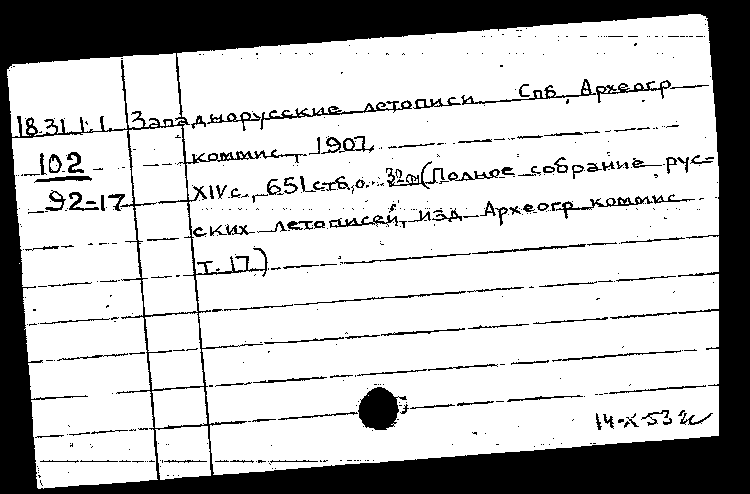 18.31.1.1. Западнорусские летописи. Спб, Археогр
102 коммис., 1907.
92-17 XIVс, 651 стб, о. (Полное собрание рус=
ских летописей, изд. Археогр коммис
т. 17)
14-X-53